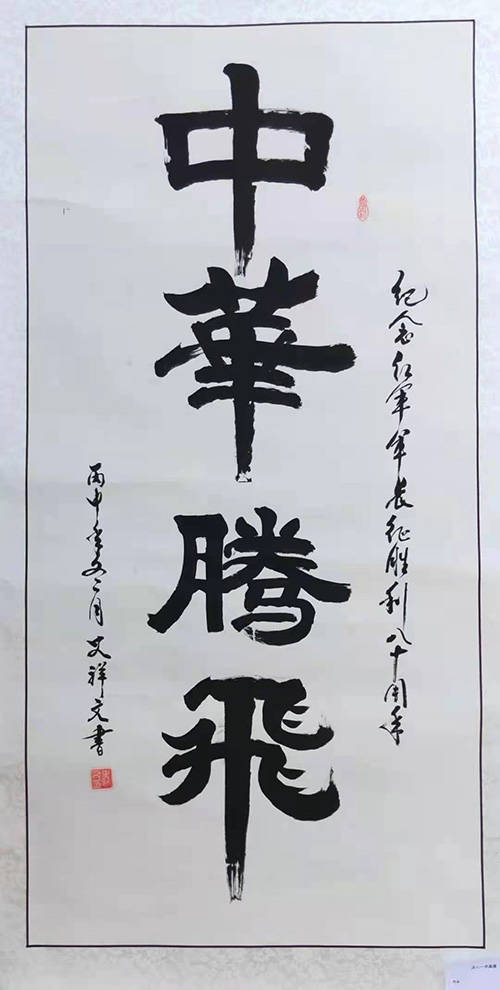 中華騰飛
纪念红軍军長征胜利八十周年
丙申年二月艾祥文書